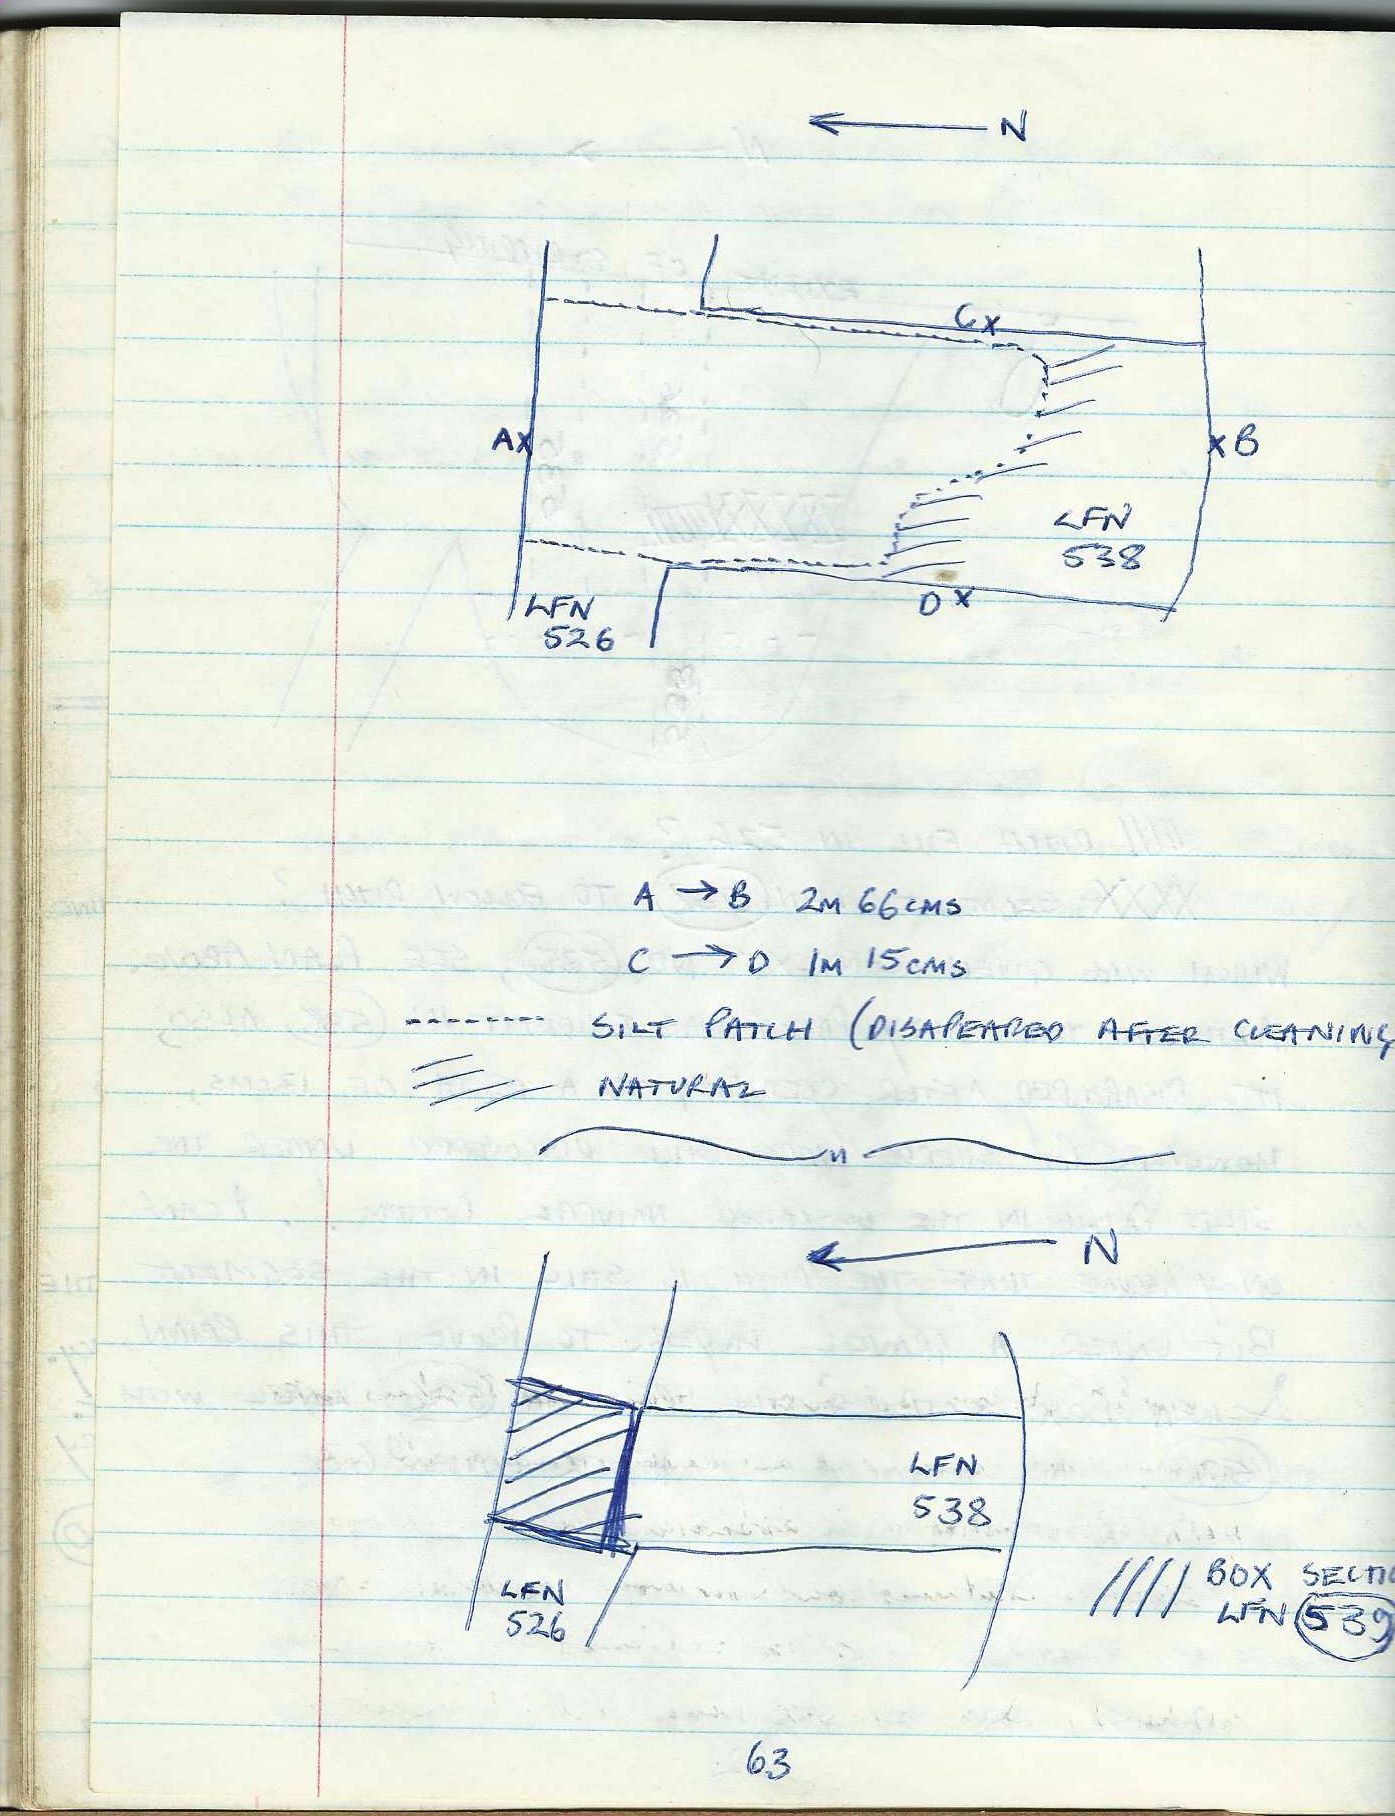 N
C x
A x
x B
LFN
538
D x
LFN
526
A → B 2M 66CMS
C → D 1M 15CMS
SILT PATCH (DISAPEARED AFTER CLEANING
NATURAL
N
LFN
538
LFN
526
BOX SECTIO
LFN 539
63